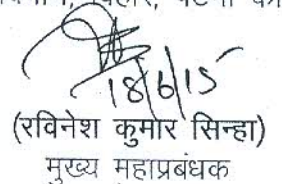 बिहार, पटना
18/6/15
(रविनेश कुमार सिन्हा)
मुख्य महाप्रबंधक